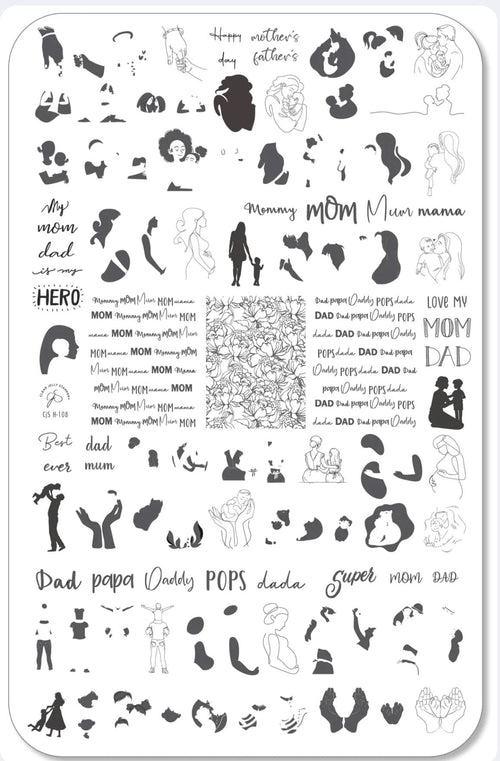 Happy mother's
day father's
Mommy MOM Mum mama
My
mom
dad
is my
HERO
Mommy MOM Mum MOM mama
MOM Mommy MOM Mum MOM
mama MOM Mommy MOM Mum
MOM mama MOM Mommy MOM
Mum MOM mama MOM
Mommy MOM Mum mama MOM
MOM Mommy MOM Mum MOM mama
MOM Mommy MOM Mum MOM
Dad papa Daddy POPS dada
DAD Dad papa Daddy POPS
dada DAD Dad papa Daddy
POPS dada DAD Dad papa
Daddy POPS dada DAD Dad
papa Daddy POPS dada
DAD Dad papa Daddy POPS
dada DAD Dad papa Daddy
LOVE MY
MOM
DAD
CLEAR JELLY STAMPER
CJS H-108
Best dad
ever mum
Dad papa Daddy POPS dada
Super MOM DAD